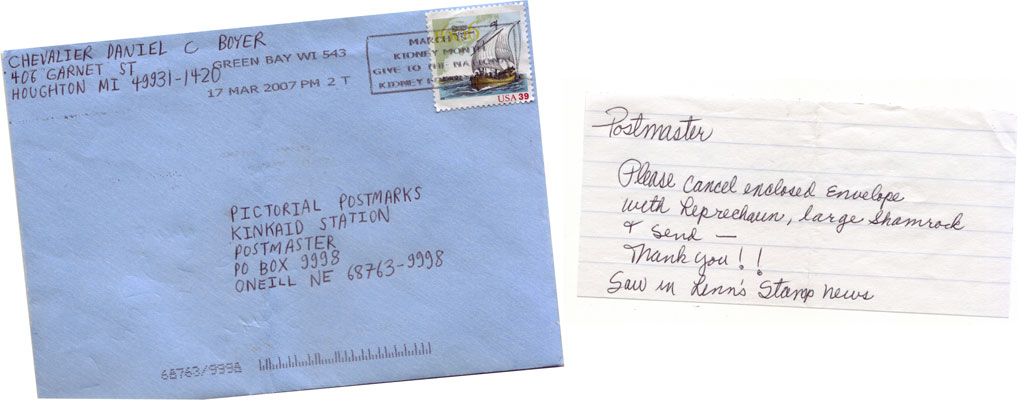 CHEVALIER DANIEL C BOYER
406 GARNET ST
HOUGHTON MI 49931-1420
GREEN BAY WI 543
17 MAR 2007 PM 2 T
MARCH IS
KIDNEY MONTH
GIVE TO THE NATION
KIDNEY
USA 39
PICTORIAL POSTMARKS
KINKAID STATION
POSTMASTER
PO BOX 9998
ONEILL NE 68763-9998
68763/9998
Postmaster
Please cancel enclosed envelope
with Leprechaun, large Shamrock
& Send —
Thank you!!
Saw in Linn's Stamp news